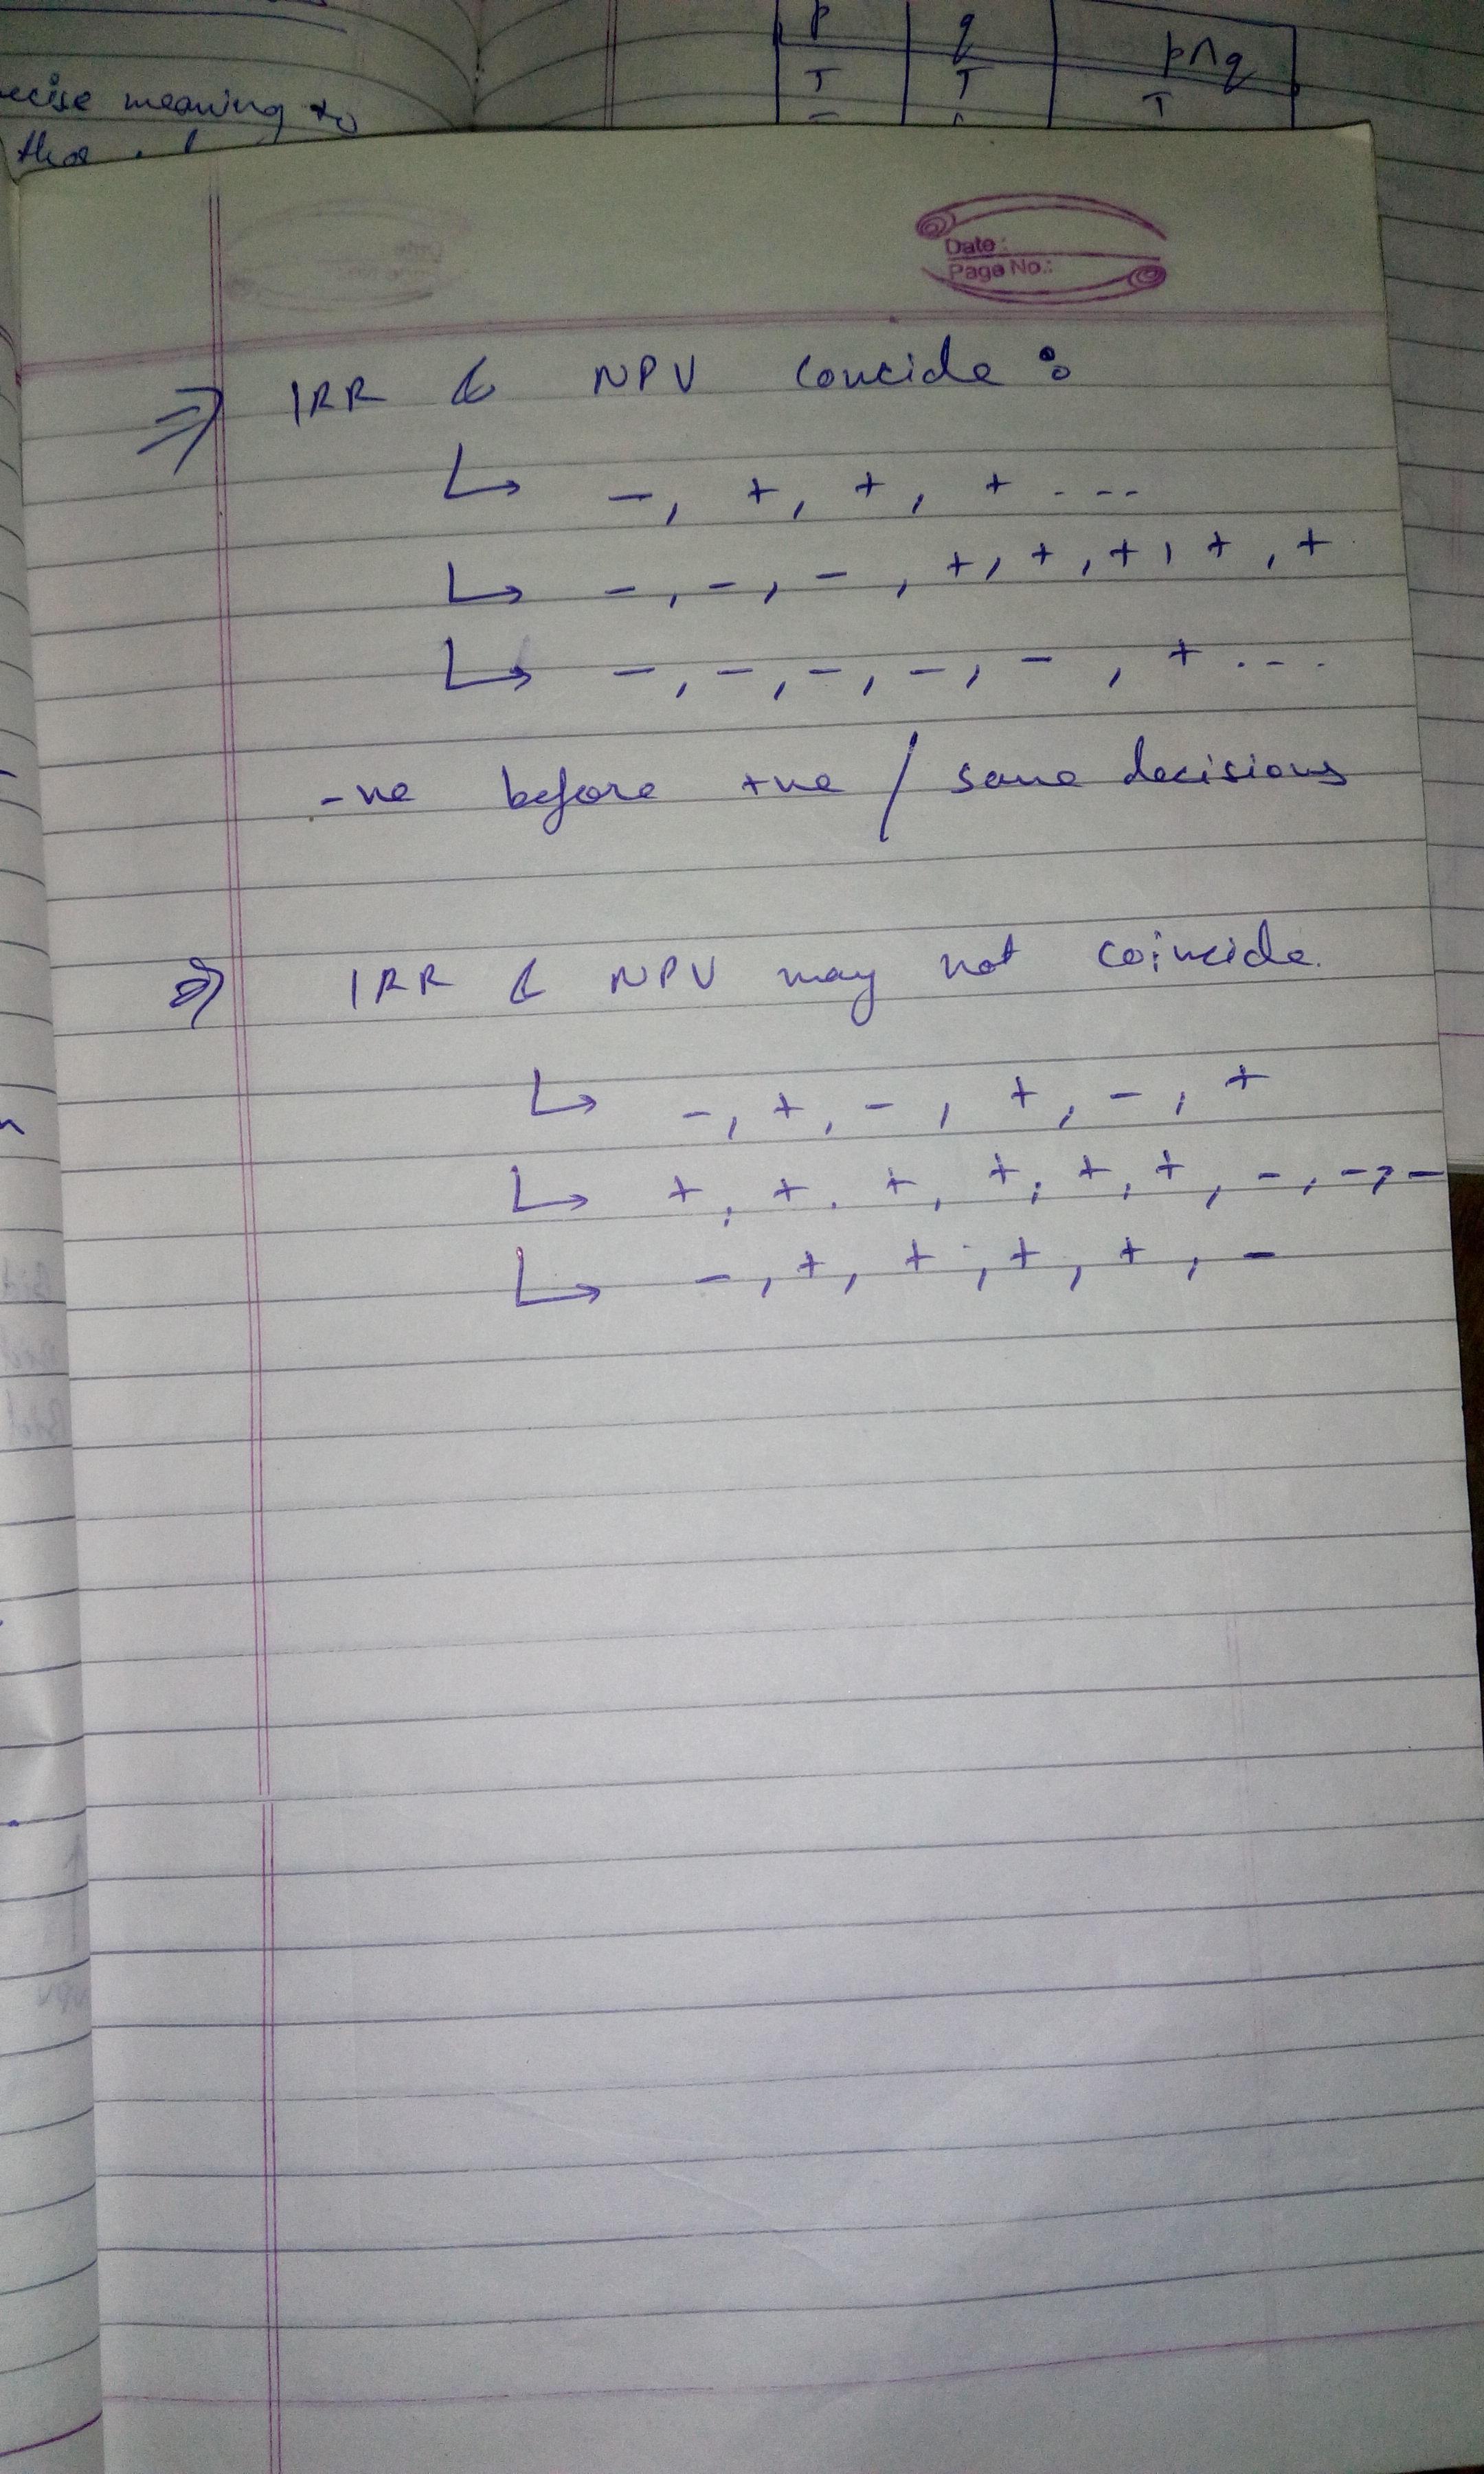 p q p∧q
T T T
ecise meaning to
Date :
Page No.:
⇒ IRR & NPV concide :
↳ -, +, +, + ....
↳ -, -, -, +, +, +, +, +
↳ -, -, -, -, -, + ...
-ve before +ve / same decisions
⇒ IRR & NPV may not coincide.
↳ -, +, -, +, -, +
↳ +, +, +, +, +, +, -, -, -
↳ -, +, +, +, +, -